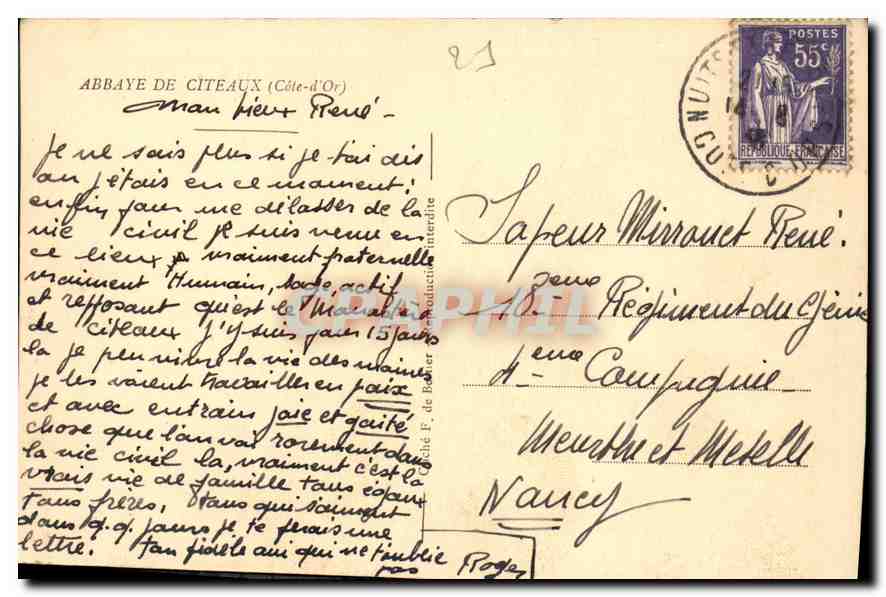 29
ABBAYE DE CÎTEAUX (Côte-d'Or)
mon vieux René -
je ne sais plus si je t'ai dis
ou j'étais en ce moment!
enfin pour me délasser de la
vie civil je suis venu en
ce lieux vraiment fraternelle
vraiment Humain, sage, actif
et repposant qu'est le Monastère
de citeaux j'y suis pour 15 jours
la je peu vivre la vie des moines
je les voient travailler en paix
et avec entrain joie et gaité
chose que l'on voi rarement dans
la vie civil la, vraiment c'est la
vrais vie de famille tous égaux
tous frères, tous qui s'aiment
dans q.q. jours je te ferais une
lettre. ton fidèle ami qui ne t'oublie
pas Roger
Cliché F. de Bouhier reproduction interdite
POSTES
55c
REPUBLIQUE FRANÇAISE
NUITS
COTE D'OR
Sapeur Mirrouet René.
10eme Régiment du Génie
4eme Compagnie
Meurthe et Moselle
Nancy
CPAPHIL